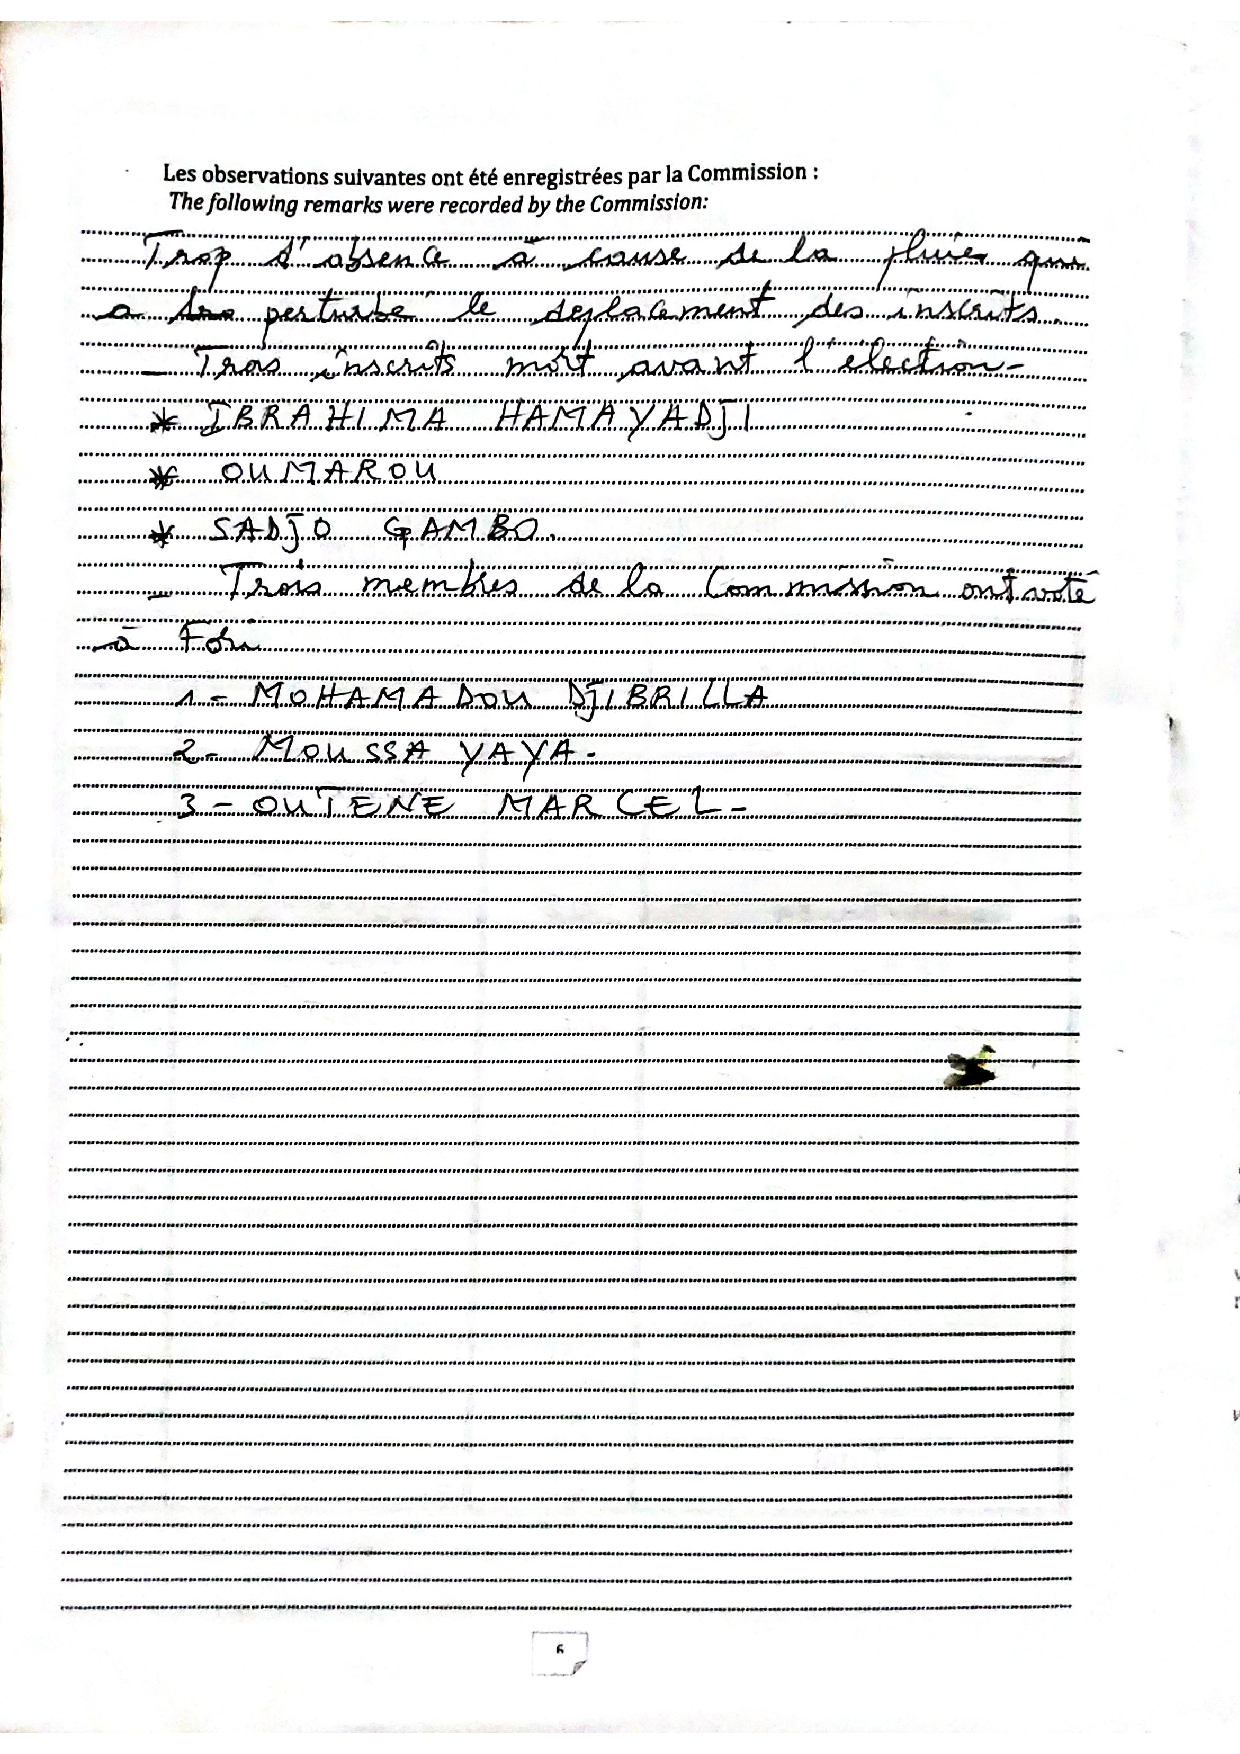 Les observations suivantes ont été enregistrées par la Commission :
The following remarks were recorded by the Commission:
Trop d'absence à cause de la pluie qui
a perturbé le deplacement des inscrits.
- Trois inscrits mort avant l'élection-
* IBRAHIMA HAMAYADJI
* OUMAROU
* SADJO GAMBO.
- Trois membres de la Commission ont voté
à
1- MOHAMADOU DJIBRILLA
2- MOUSSA YAYA-
3- OUTENE MARCEL-
6